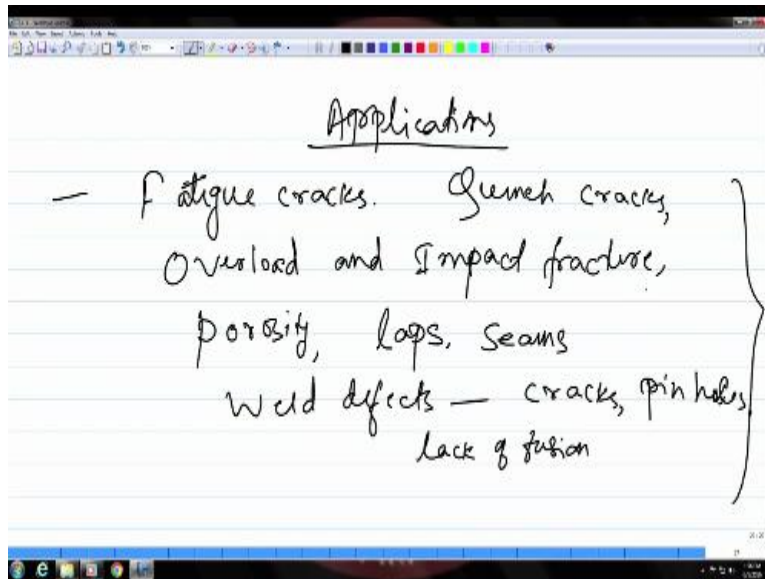 Applications
— Fatigue cracks. Quench cracks,
Overload and Impact fracture,
Porosity, laps, seams
Weld defects — cracks, pin holes,
lack of fusion